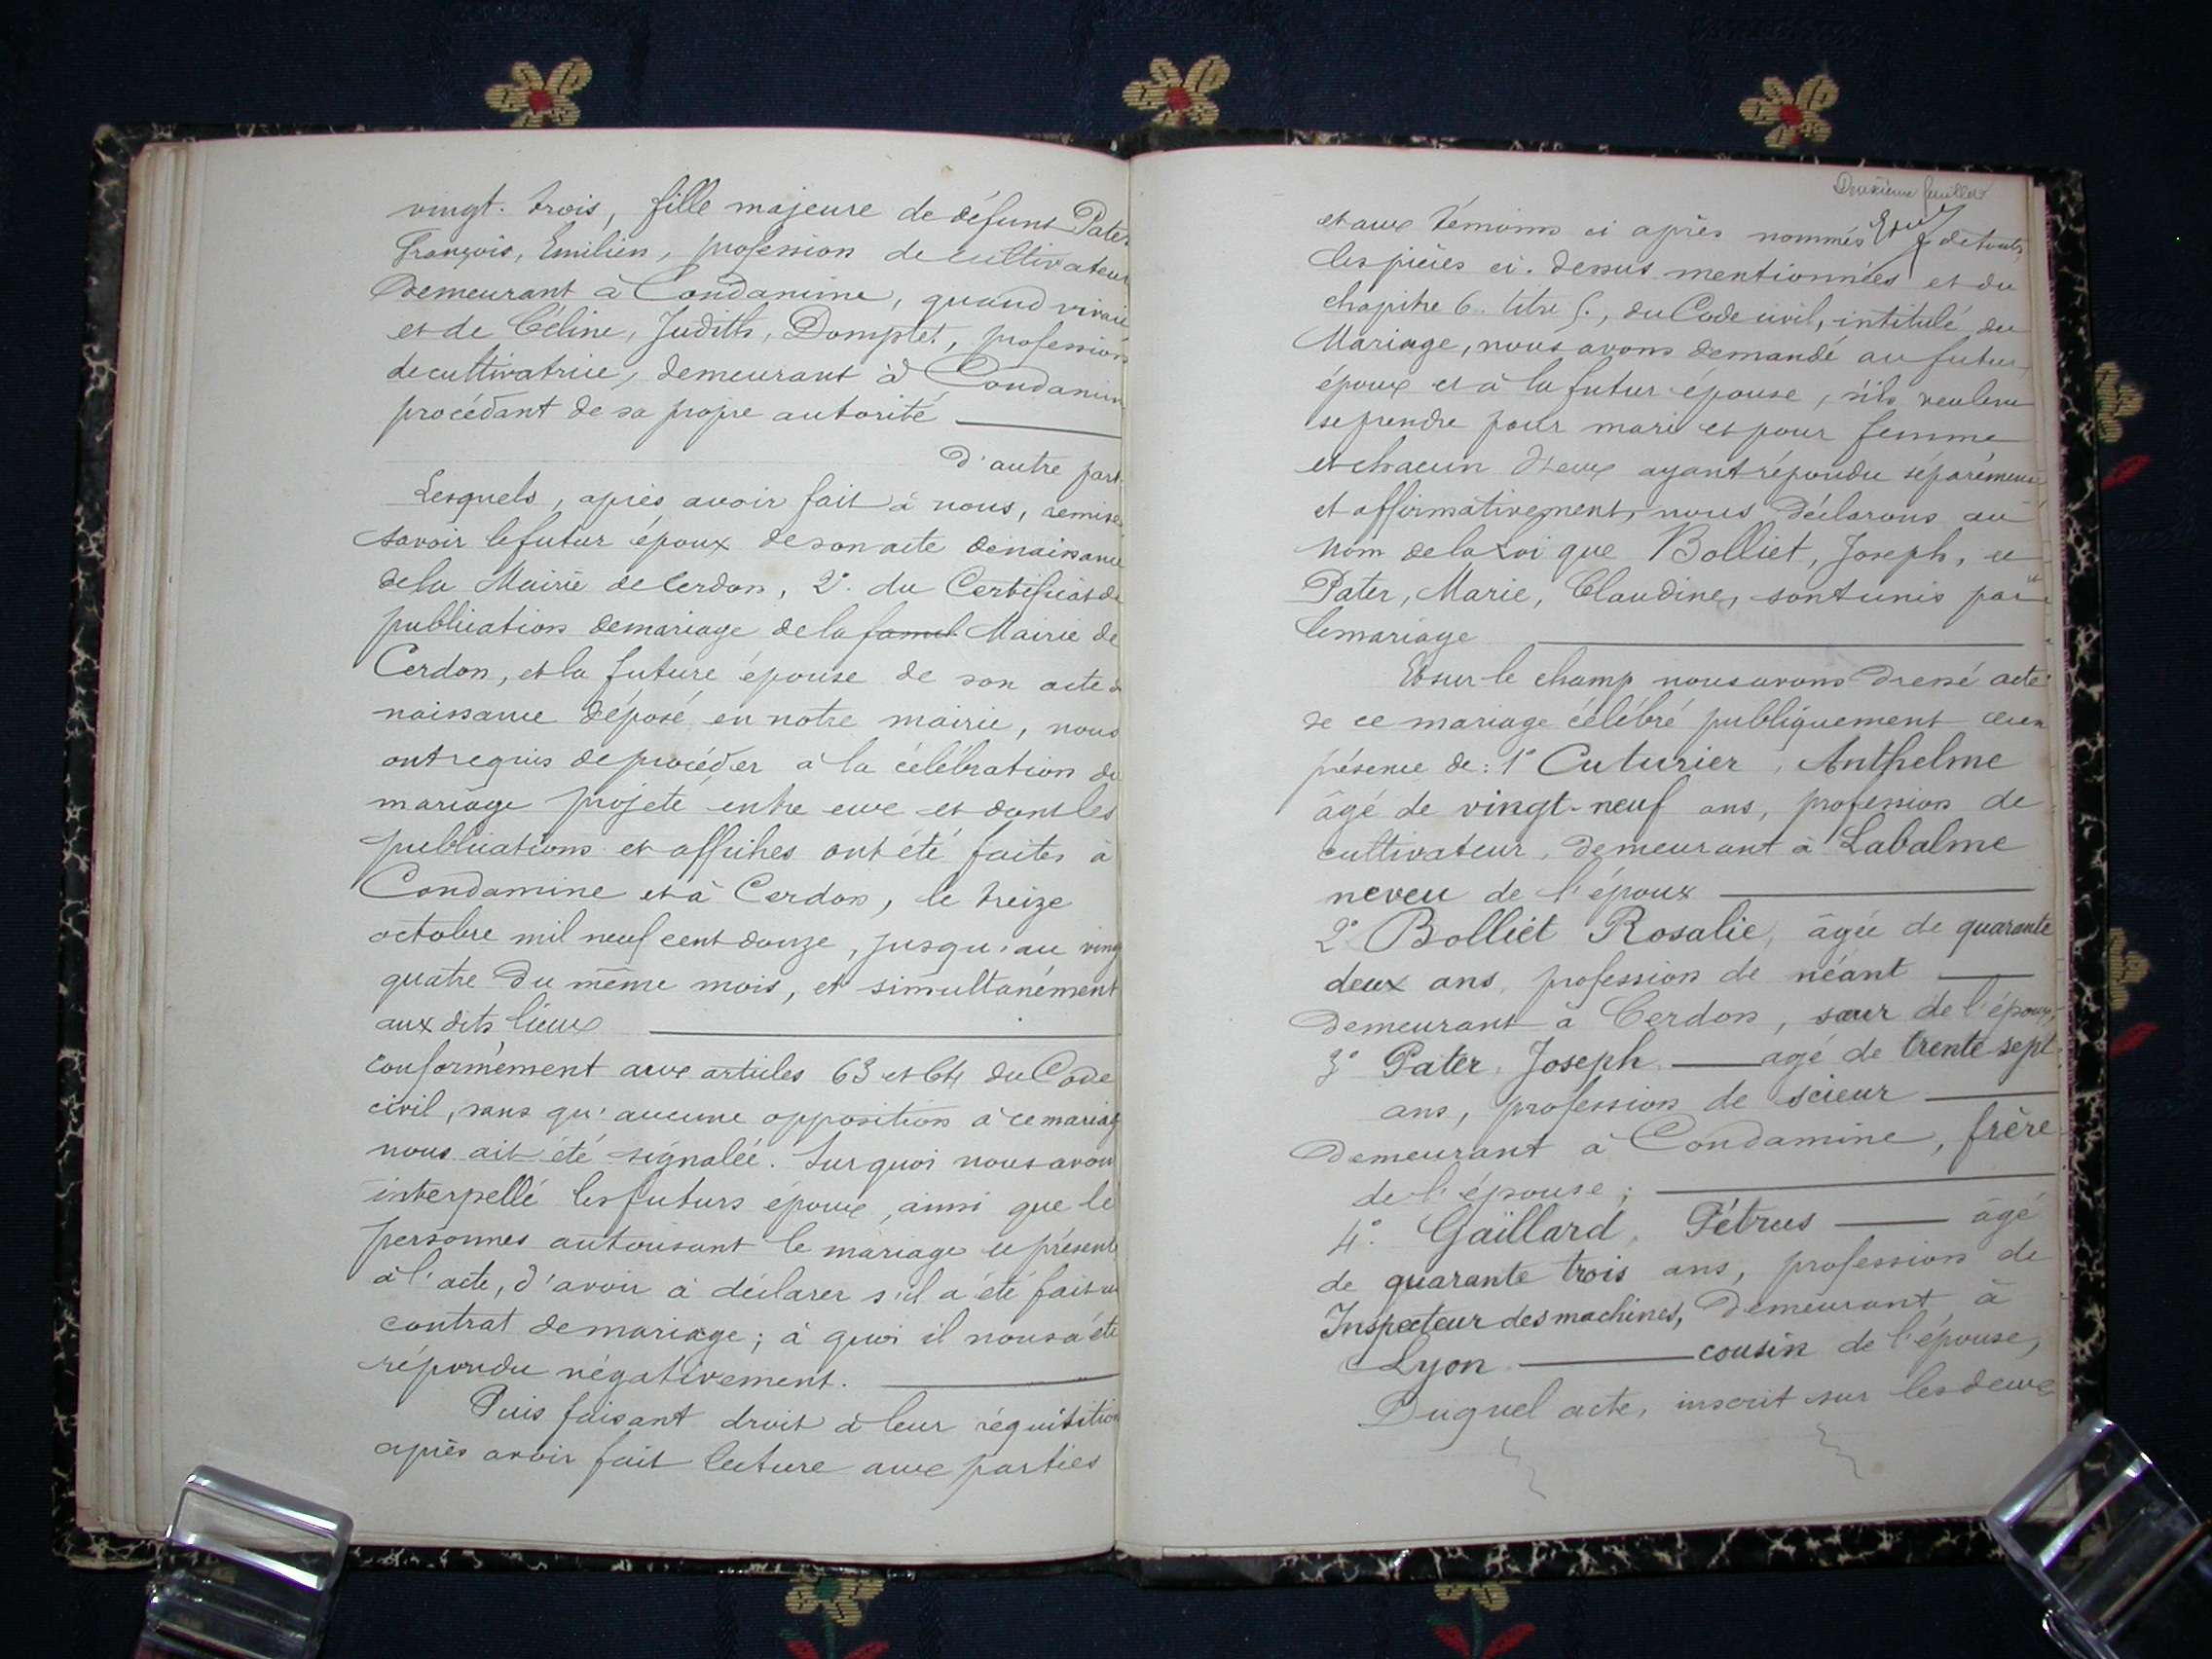 vingt. trois, fille majeure de défunt Pater
François, Emilien, profession de cultivateur
Demeurant à Condamine, quand vivait
et de Céline, Judith, Domplet, profession
de cultivatrice, demeurant à Condamine
procédant de sa propre autorité
d'autre part.
Lesquels, après avoir fait à nous, remise
savoir le futur époux de son acte de naissance
de la Mairie de Cerdon, 2° du Certificat de
publication de mariage de la famil Mairie de
Cerdon, et la future épouse de son acte de
naissance déposé en notre mairie, nous
ont requis de procéder à la célébration du
mariage projeté entre eux et dont les
publications et affiches ont été faites à
Condamine et à Cerdon, le treize
octobre mil neuf cent douze, jusqu'au ving
quatre du même mois, et simultanément
aux dits lieux
conformément aux articles 63 et 64 du Code
civil, sans qu'aucune opposition à ce mariag
nous ait été signalée. Sur quoi nous avons
interpellé les futurs époux, ainsi que le
personnes autorisant le mariage et présent
à l'acte, d'avoir à déclarer s'il a été fait un
contrat de mariage; à quoi il nous a été
répondu négativement.
Puis faisant droit à leur réquisition
après avoir fait lecture aux parties
Deuxième feuillet
et aux témoins ci après nommés de toutes
les pièces ci. dessus mentionnées et du
chapitre 6. titre 5., du Code civil, intitulé du
Mariage, nous avons demandé au futur
époux et à la futur épouse, s'ils veulent
se prendre pour mari et pour femme
et chacun d'eux ayant répondu séparément
et affirmativement, nous déclarons au
nom de la Loi que Bolliet, Joseph, et
Pater, Marie, Claudine, sont unis par
le mariage
Et sur le champ nous avons dressé acte
de ce mariage célébré publiquement et en
présence de: 1° Cuturier, Anthelme
âgé de vingt-neuf ans, profession de
cultivateur, demeurant à Labalme
neveu de l'époux
2° Bolliet Rosalie, âgée de quarante
deux ans, profession de néant
demeurant à Cerdon, sœur de l'époux,
3° Pater, Joseph agé de trente sept
ans, profession de scieur
Demeurant à Condamine, frère
de l'épouse;
4°. Gaillard, Pétrus âgé
de quarante trois ans, profession de
Inspecteur des machines, demeurant à
Lyon cousin de l'épouse,
Duquel acte, inscrit sur les deux